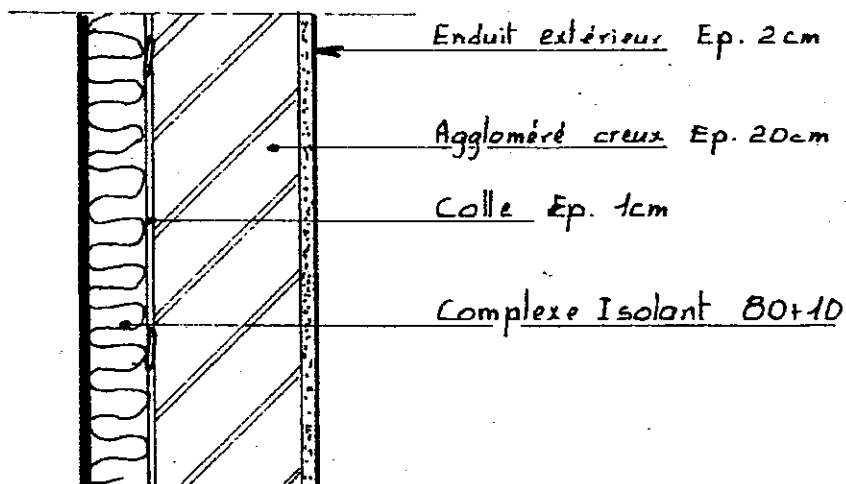 Enduit extérieur Ep. 2cm
Aggloméré creux Ep. 20cm
Colle Ep. 1cm
Complexe Isolant 80+10